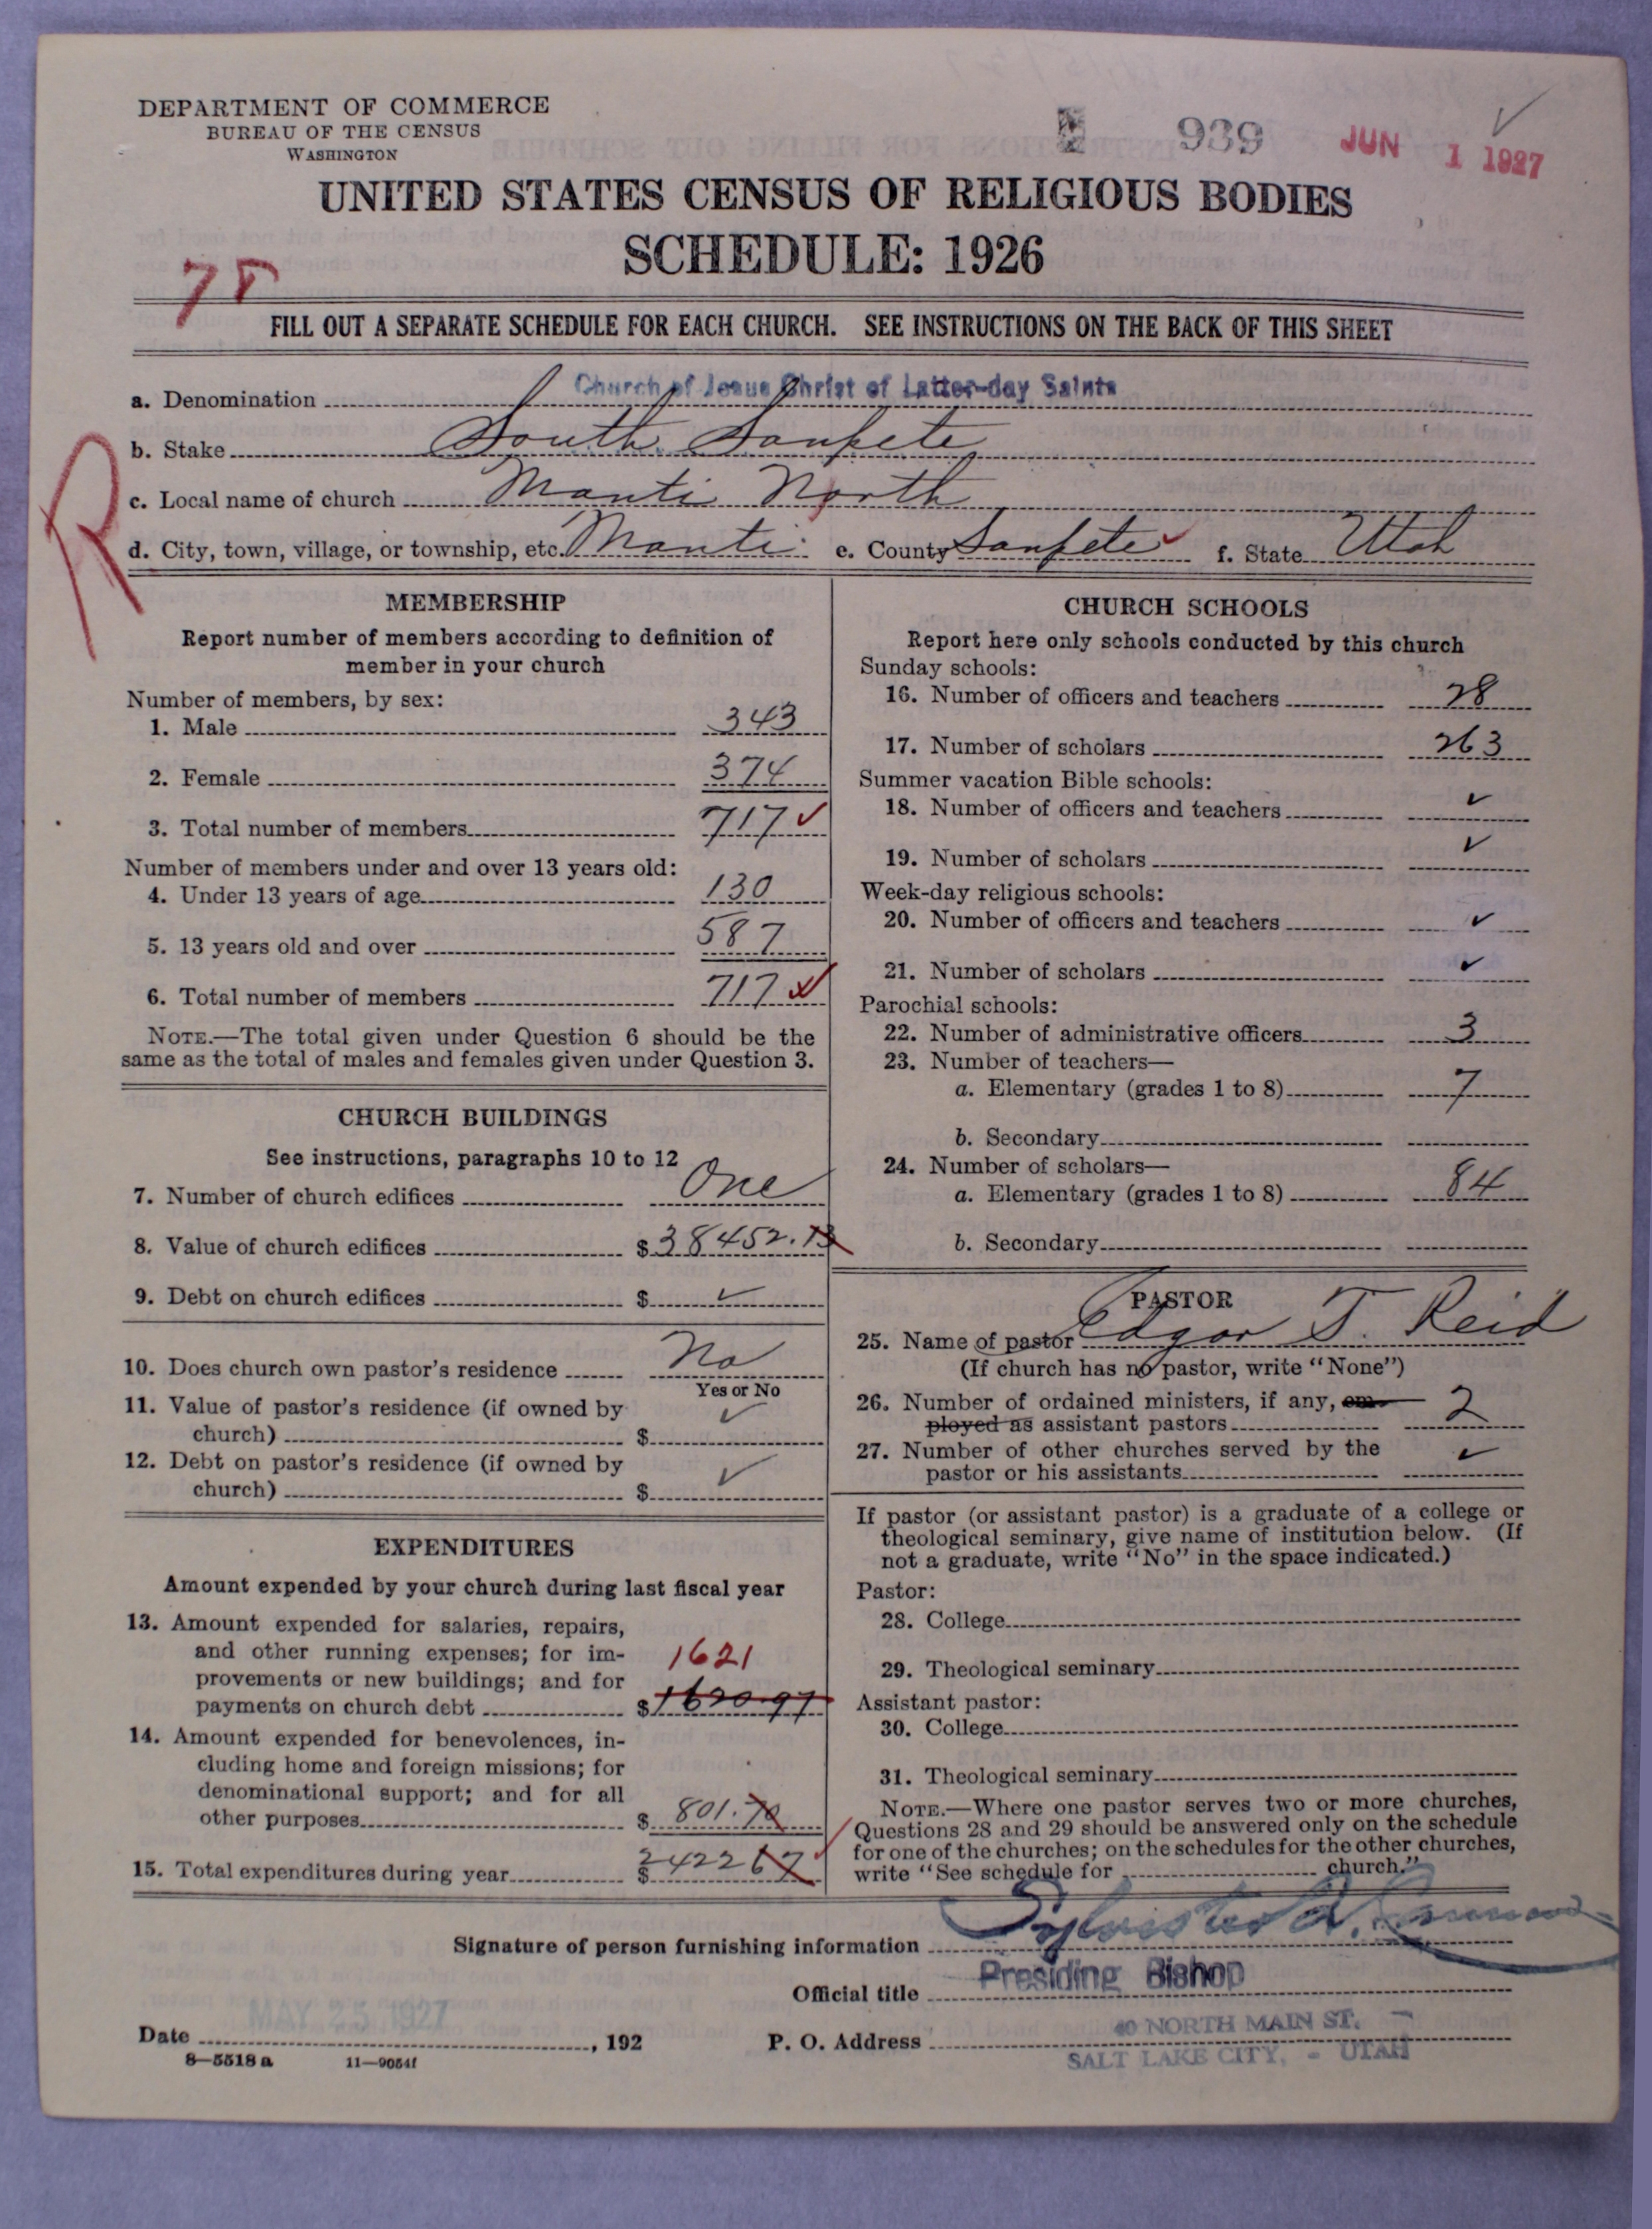 DEPARTMENT OF COMMERCE
BUREAU OF THE CENSUS
WASHINGTON
939
JUN 1 1927
UNITED STATES CENSUS OF RELIGIOUS BODIES
SCHEDULE: 1926
FILL OUT A SEPARATE SCHEDULE FOR EACH CHURCH. SEE INSTRUCTIONS ON THE BACK OF THIS SHEET
a. Denomination Church of Jesus Christ of Latter-day Saints
b. Stake South Sanpete
c. Local name of church Manti North
d. City, town, village, or township, etc. Manti e. County Sanpete f. State Utah
R
MEMBERSHIP
Report number of members according to definition of
member in your church
Number of members, by sex:
1. Male 343
2. Female 374
3. Total number of members 717
Number of members under and over 13 years old:
4. Under 13 years of age 130
5. 13 years old and over 587
6. Total number of members 717
NOTE.—The total given under Question 6 should be the
same as the total of males and females given under Question 3.
CHURCH BUILDINGS
See instructions, paragraphs 10 to 12
7. Number of church edifices One
8. Value of church edifices $ 38452.13
9. Debt on church edifices $ ✓
10. Does church own pastor's residence No
Yes or No
11. Value of pastor's residence (if owned by
church) $ ✓
12. Debt on pastor's residence (if owned by
church) $ ✓
EXPENDITURES
Amount expended by your church during last fiscal year
13. Amount expended for salaries, repairs,
and other running expenses; for im-
provements or new buildings; and for 1621
payments on church debt $ 1620.97
14. Amount expended for benevolences, in-
cluding home and foreign missions; for
denominational support; and for all
other purposes $ 801.70
15. Total expenditures during year $ 242267
CHURCH SCHOOLS
Report here only schools conducted by this church
Sunday schools:
16. Number of officers and teachers 28
17. Number of scholars 263
Summer vacation Bible schools:
18. Number of officers and teachers ✓
19. Number of scholars ✓
Week-day religious schools:
20. Number of officers and teachers ✓
21. Number of scholars ✓
Parochial schools:
22. Number of administrative officers 3
23. Number of teachers—
a. Elementary (grades 1 to 8) 7
b. Secondary
24. Number of scholars—
a. Elementary (grades 1 to 8) 84
b. Secondary
PASTOR
25. Name of pastor Edgar T. Reid
(If church has no pastor, write "None")
26. Number of ordained ministers, if any, em-
ployed as assistant pastors 2
27. Number of other churches served by the
pastor or his assistants ✓
If pastor (or assistant pastor) is a graduate of a college or
theological seminary, give name of institution below. (If
not a graduate, write "No" in the space indicated.)
Pastor:
28. College
29. Theological seminary
Assistant pastor:
30. College
31. Theological seminary
NOTE.—Where one pastor serves two or more churches,
Questions 28 and 29 should be answered only on the schedule
for one of the churches; on the schedules for the other churches,
write "See schedule for church."
Signature of person furnishing information Sylvester Q. Cannon
Official title Presiding Bishop
Date MAY 25 1927, 192 P. O. Address 40 NORTH MAIN ST.
SALT LAKE CITY, - UTAH
8—5518 a 11—9054f